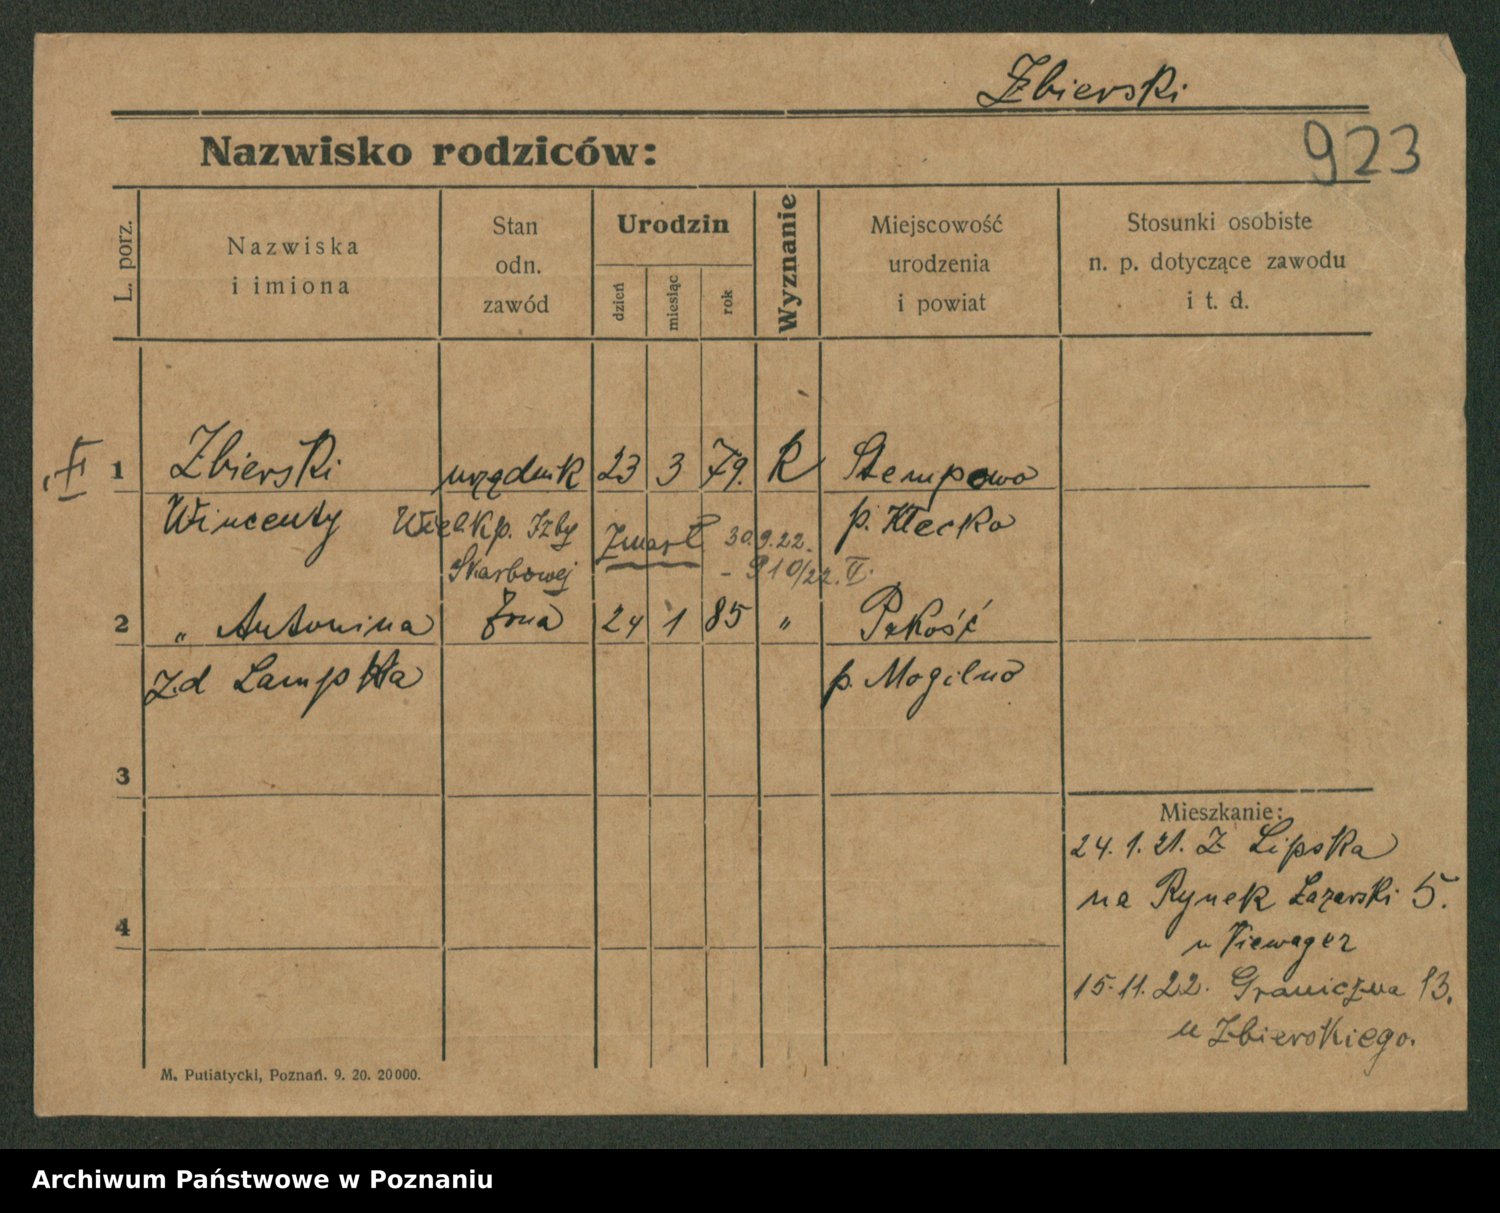 Zbierski
Nazwisko rodziców:
923
L. porz.
Nazwiska
i imiona
Stan
odn.
zawód
Urodzin
dzień
miesiąc
rok
Wyznanie
Miejscowość
urodzenia
i powiat
Stosunki osobiste
n. p. dotyczące zawodu
i t. d.
1 Zbierski urzędnik 23 3 79. R Stempowo
Wincenty Wielkp. Izby Zmarł 30.9.22. p. Kłecko
Skarbowej - 910/22. V.
2 „ Antonina żona 24 1 85 „ Pakość
z.d Lampka p. Mogilno
3
Mieszkanie:
24.1.21. Z Lipska
na Rynek Łazarski 5.
u Viewager
4
15.11.22. Graniczna 13.
u Zbierskiego.
M. Putiatycki, Poznań. 9. 20. 20000.
Archiwum Państwowe w Poznaniu